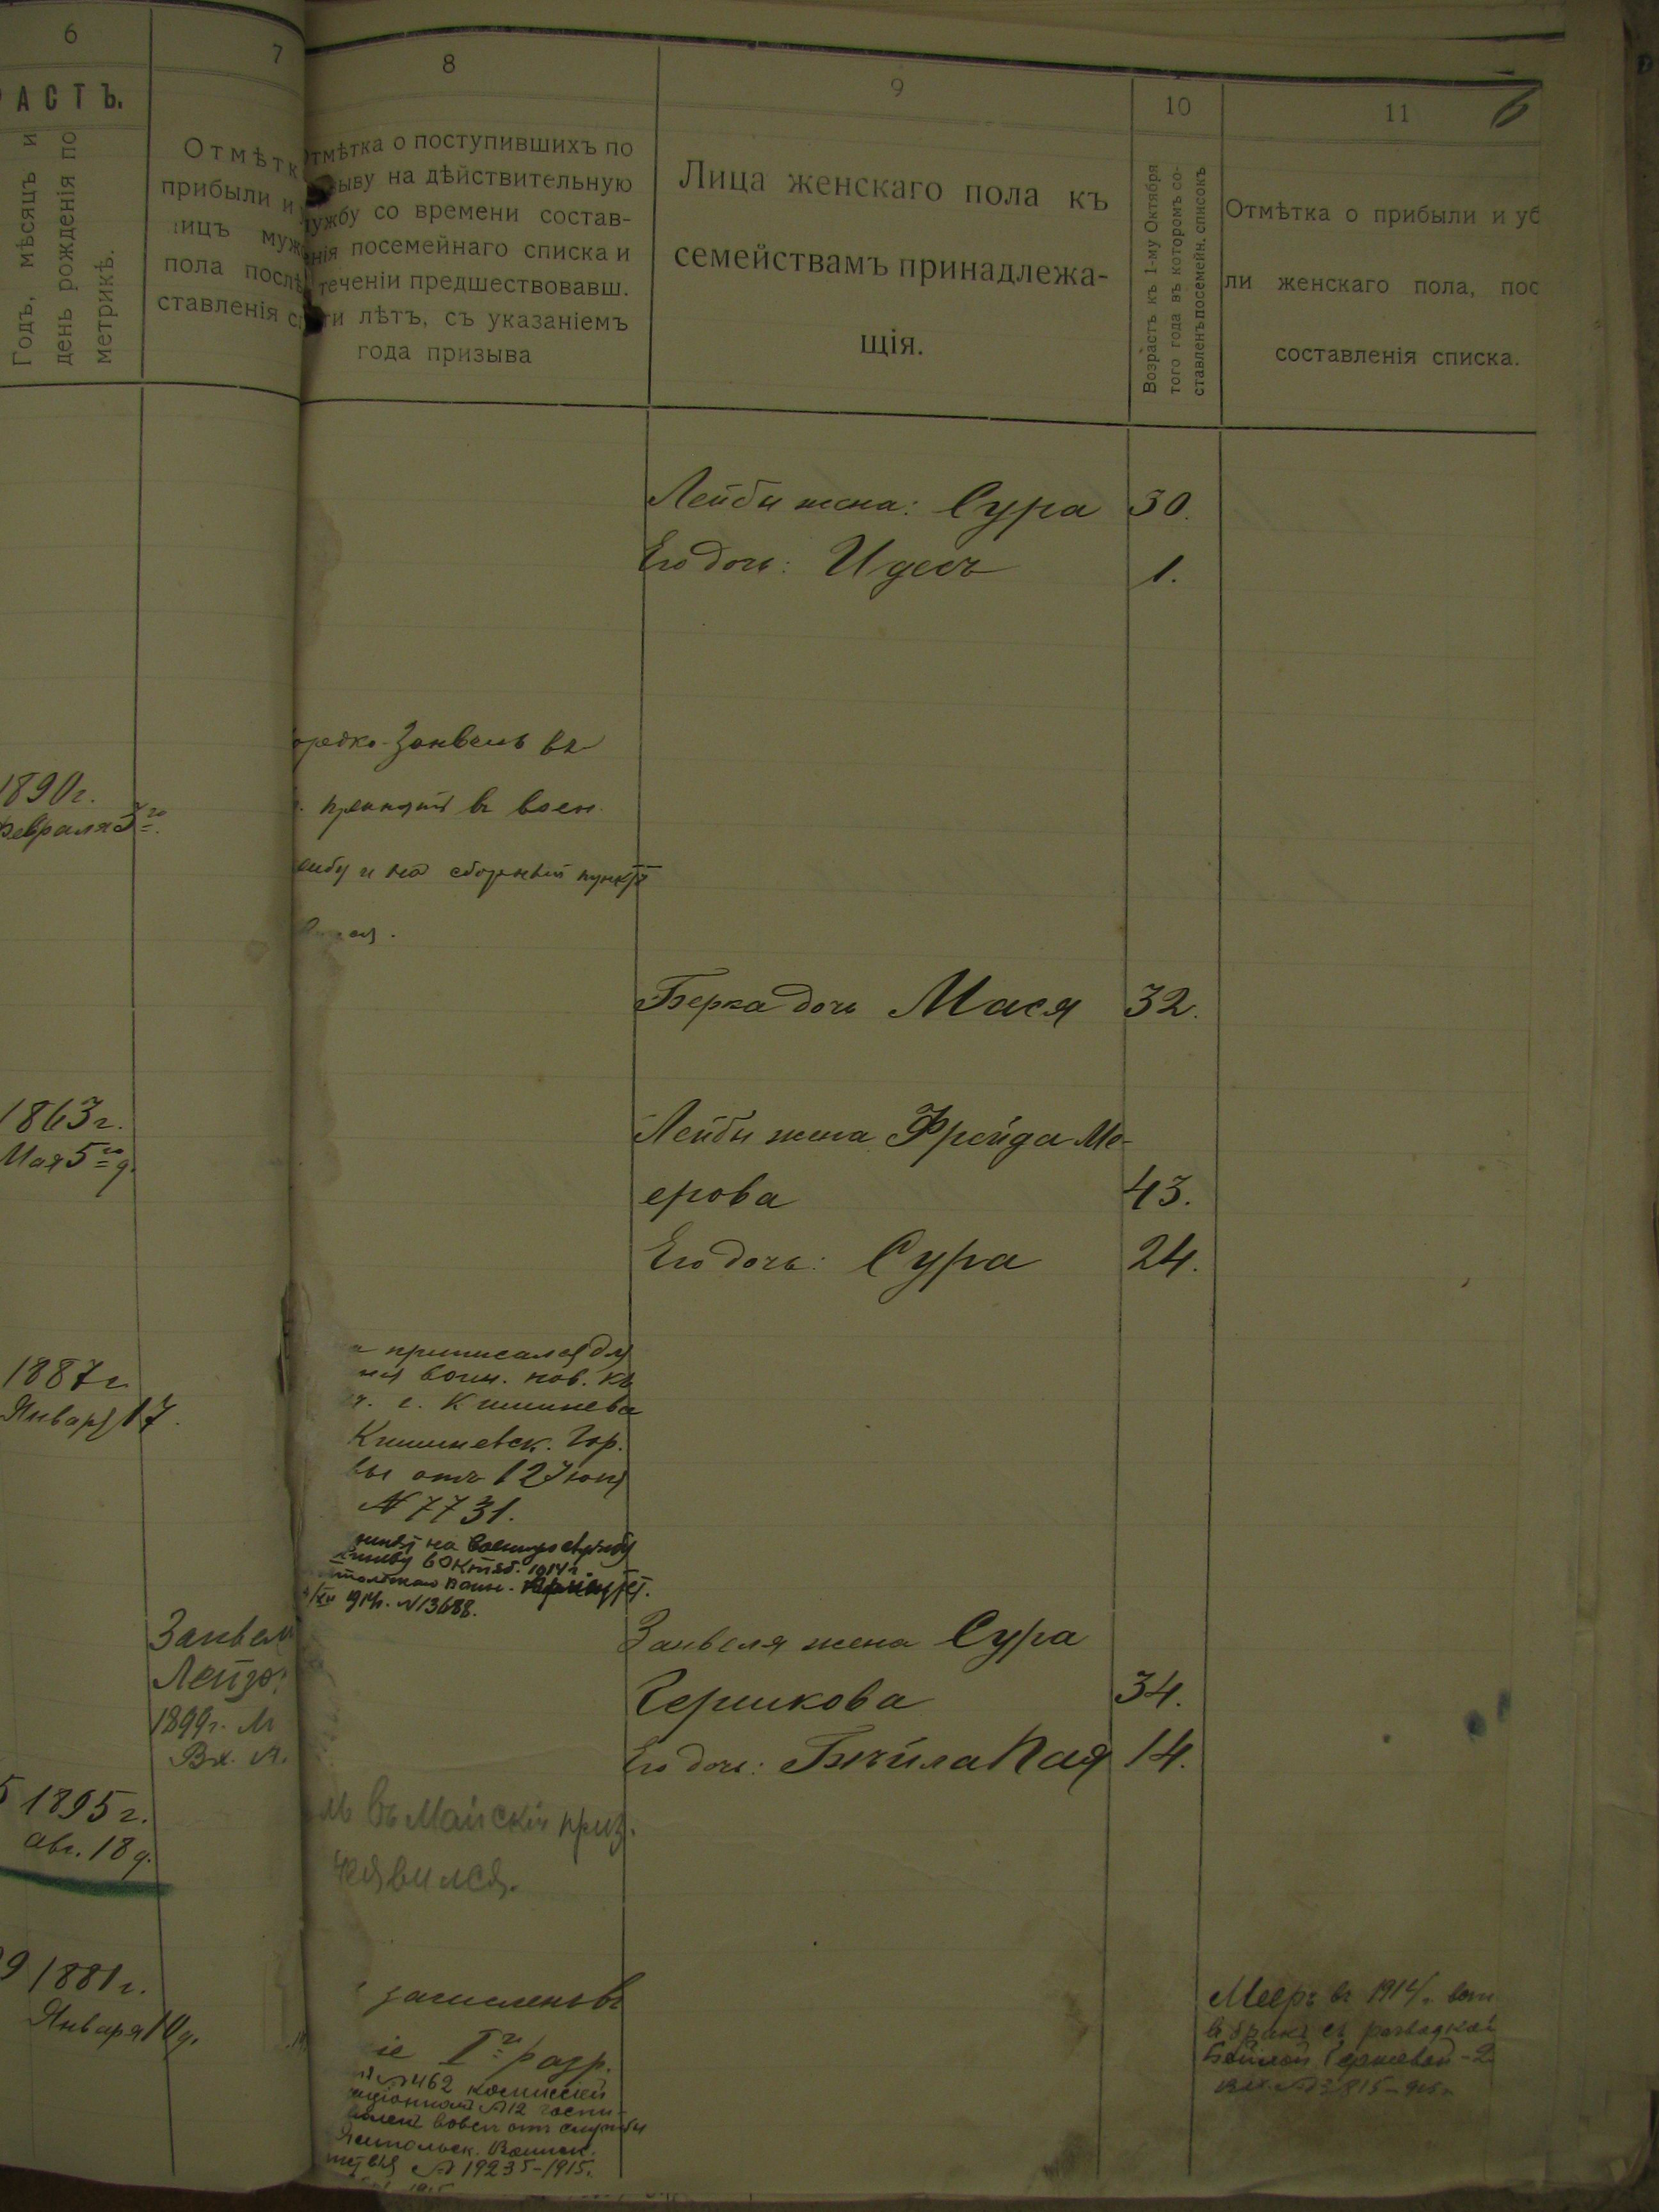 6
РАСТЪ.
Годъ, мѣсяцъ и
день рожденія по
метрикѣ.
7
Отмѣтк
прибыли и
лицъ муж
пола послѣ
ставленія с
8
Отмѣтка о поступившихъ по
зыву на дѣйствительную
лужбу со времени состав-
енія посемейнаго списка и
теченіи предшествовавш.
ти лѣтъ, съ указаніемъ
года призыва
9
Лица женскаго пола къ
семействамъ принадлежа-
щія.
10
Возрастъ къ 1-му Октября
того года въ которомъ со-
ставленъ посемейн. списокъ
11
6
Отмѣтка о прибыли и уб
ли женскаго пола, пос
составленія списка.
Лейбы жена: Сура 30.
Его дочь: Идесъ 1.
1890 г.
Февраля 3го
Занвель въ
принятъ въ воен.
и на сборный пунктъ
Берка дочь Мася 32.
1863 г.
Мая 5го д.
Лейбы жена Фрейда Ме-
ерова 43.
Его дочь: Сура 24.
1887 г
Января 17.
приписался для
воин. пов. къ
г. Кишинева
Кишиневск. Гор.
отъ 12 Іюня
№ 7731.
на военную службу
6 Октяб. 1914 г.
воин.
914. № 13688.
Занвел
Лейзо
1899 г. М
Вх. №.
Занвеля жена Сура
Гершкова 34.
Его дочь: Бейла Хая 14.
5 1895 г.
авг. 18 д.
въ Майскій приз.
явился.
9 1881 г.
Января 10 д.
зачисленъ въ
іе Iго разр.
№ 462 комиссіей
№ 12 госпи-
вовсе отъ службы
Ямпольск. Воинск.
№ 19235-1915.
Мееръ въ 1914 г. вст
въ бракъ съ разводкой
Бейлой Гершевой - 2